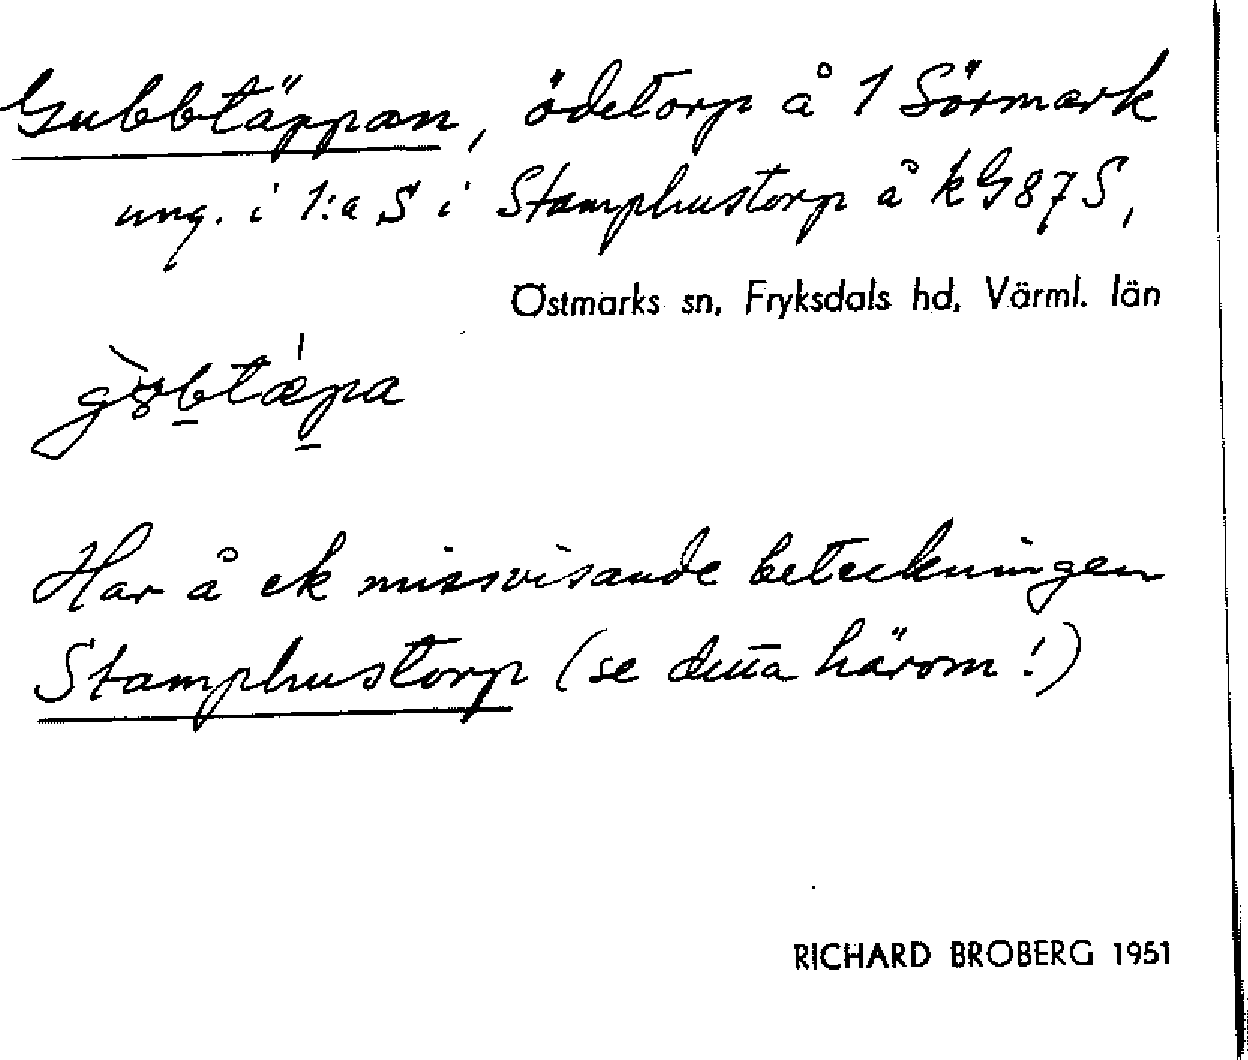 Gubbtäppan, ödetorp å 1 Sörmark
ung. i 1:a S i Stamphustorp å kG87S,
Östmarks sn, Fryksdals hd, Värml. län
Har å ek missvisande beteckningen
Stamphustorp (se detta härom!)
RICHARD BROBERG 1951